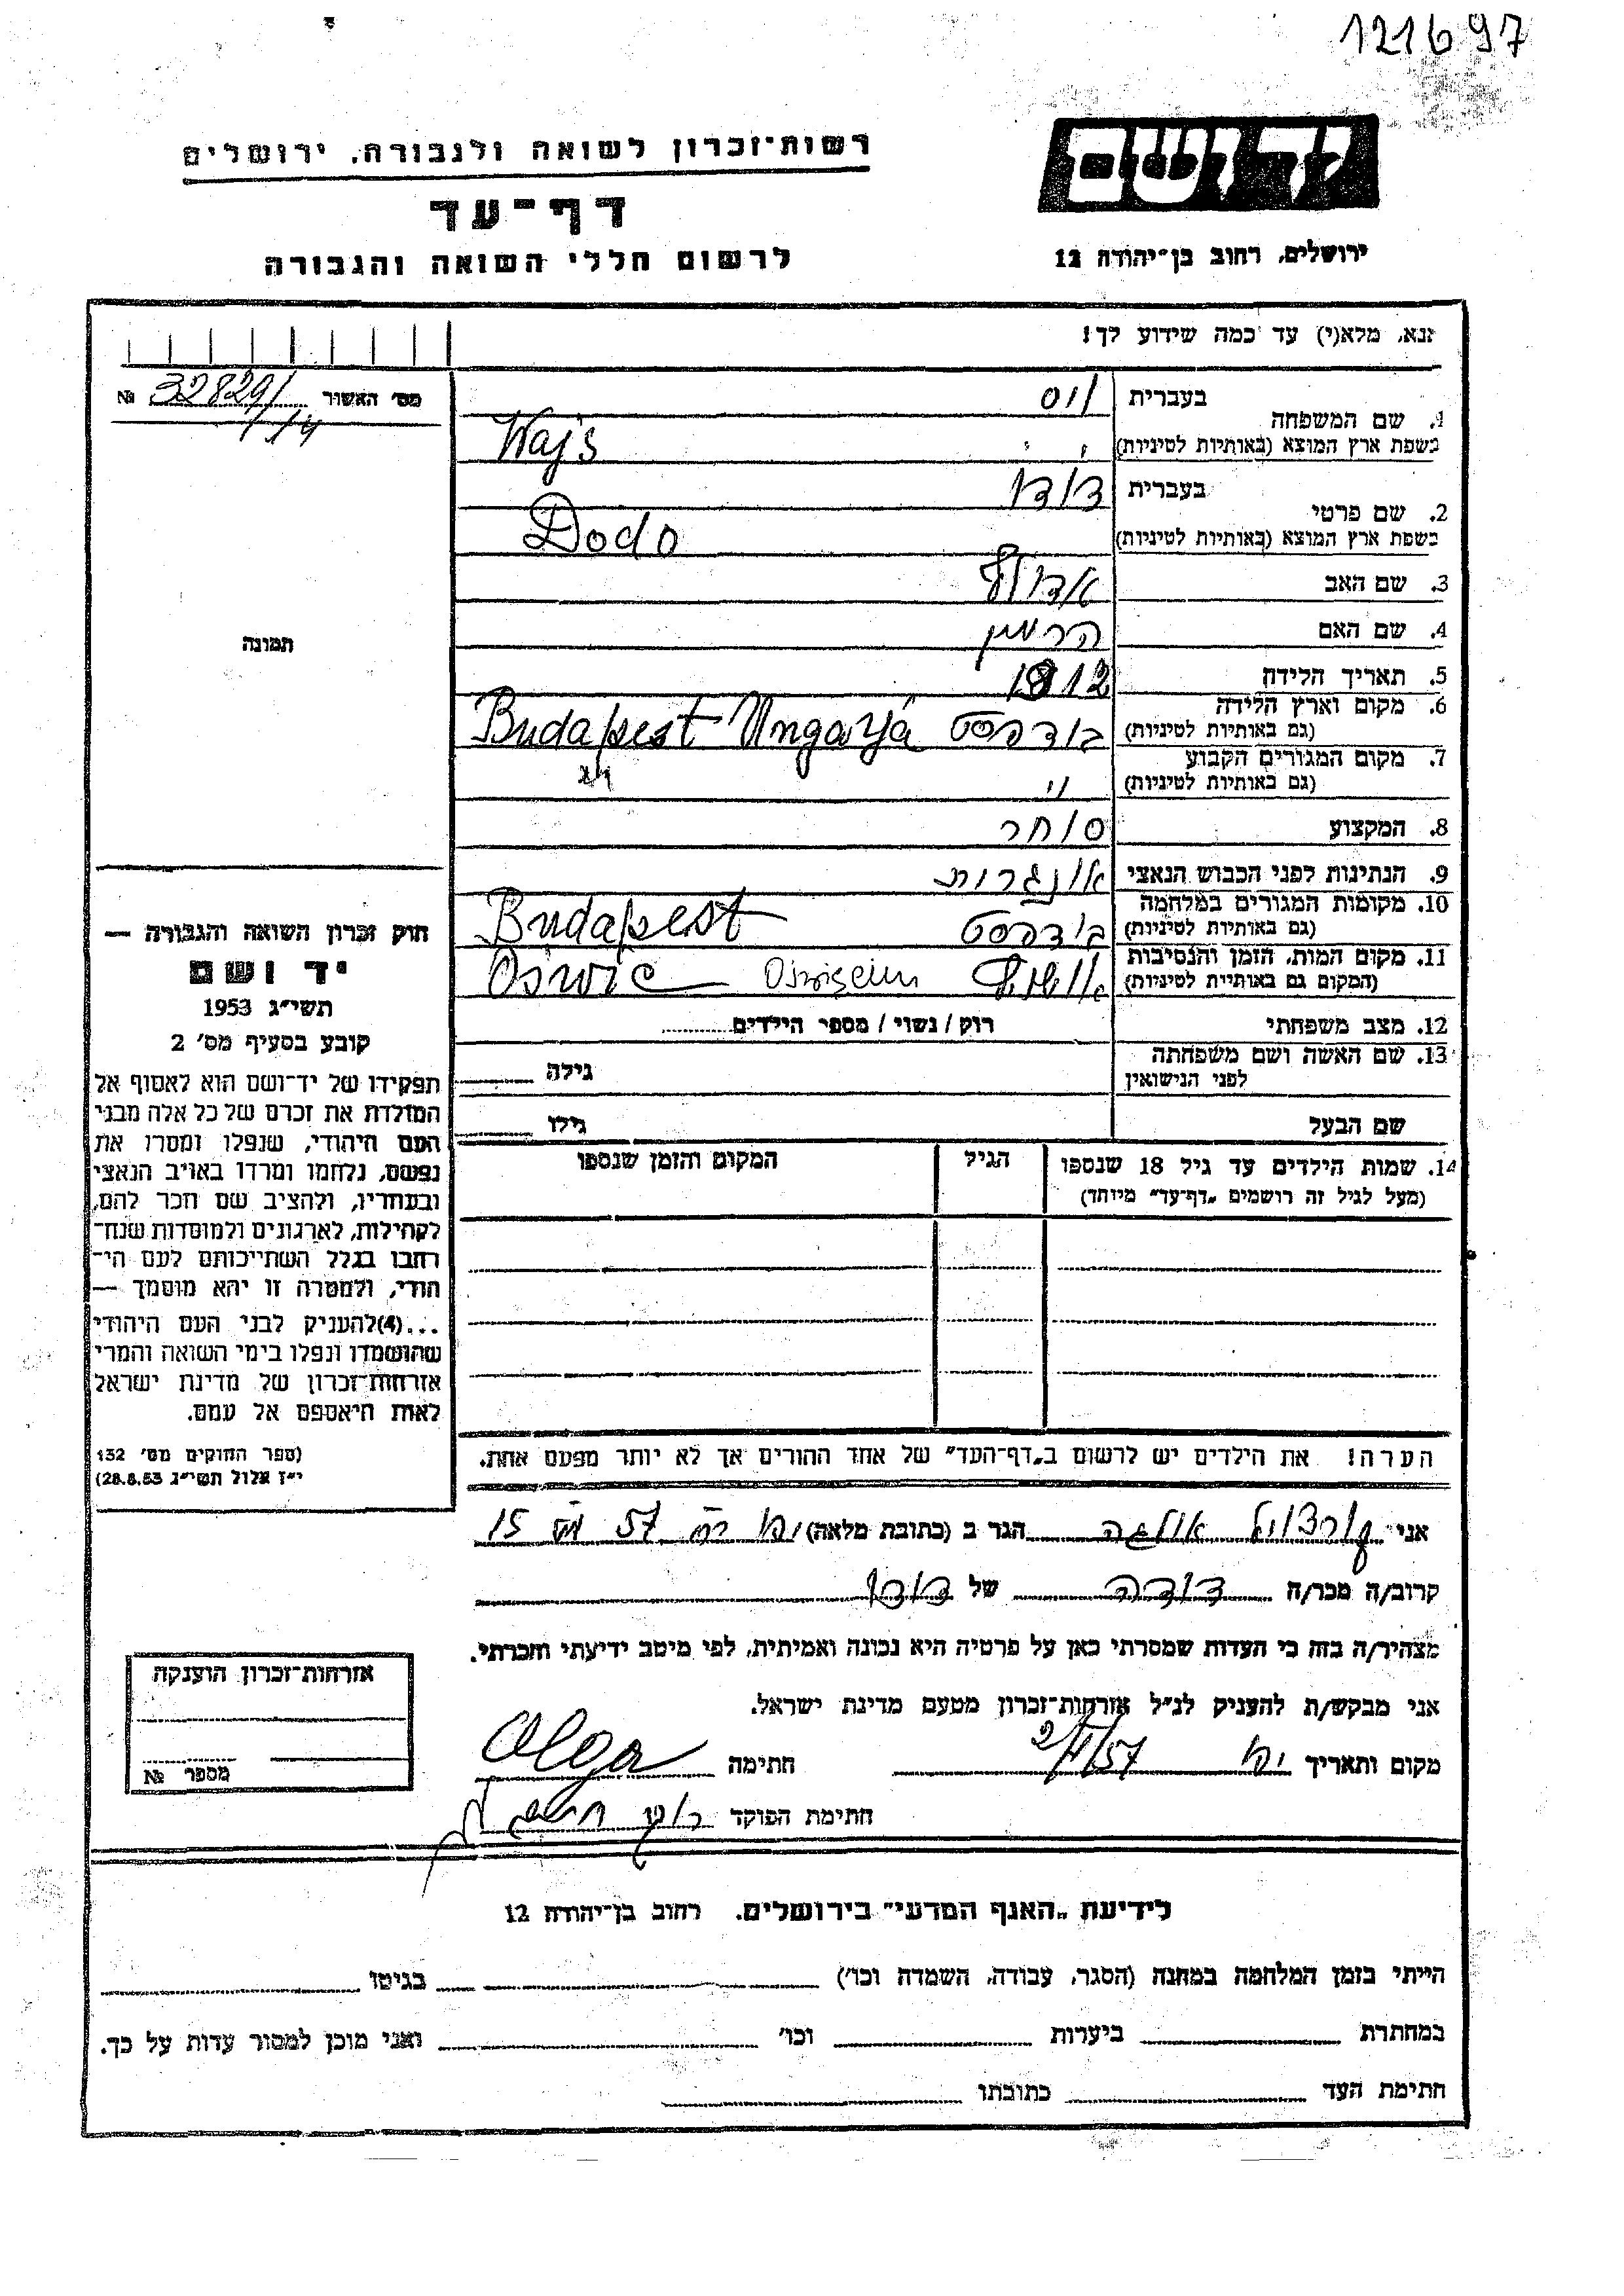 121697
יד ושם
רשות־זכרון לשואה ולגבורה, ירושלים
דף־עד
לרשום חללי השואה והגבורה
ירושלים, רחוב בן־יהודה 12
נא, מלא(י) עד כמה שידוע לך!
מס' האשור 32829/ №
114
1. שם המשפחה
בעברית וס
בשפת ארץ המוצא (באותיות לטיניות) Wajs
2. שם פרטי
בעברית דודו
בשפת ארץ המוצא (באותיות לטיניות) Dodo
3. שם האב אדולף
4. שם האם הרמין
5. תאריך הלידה 1912
6. מקום וארץ הלידה
(גם באותיות לטיניות) בודפסט Budapest Ungarja
7. מקום המגורים הקבוע
(גם באותיות לטיניות) "
8. המקצוע סוחר
9. הנתינות לפני הכבוש הנאצי אונגרות
10. מקומות המגורים במלחמה
(גם באותיות לטיניות) בודפסט Budapest
11. מקום המות, הזמן והנסיבות
(המקום גם באותיות לטיניות) Oswic
12. מצב משפחתי רוק / נשוי / מספר הילדים
13. שם האשה ושם משפחתה
לפני הנישואין גילה
שם הבעל גילו
14. שמות הילדים עד גיל 18 שנספו הגיל המקום והזמן שנספו
(מעל לגיל זה רושמים „דף־עד" מיוחד)
הערה! את הילדים יש לרשום ב„דף־העד" של אחד ההורים אך לא יותר מפעם אחת.
תמונה
חוק זכרון השואה והגבורה —
יד ושם
תשי"ג 1953
קובע בסעיף מס' 2
תפקידו של יד־ושם הוא לאסוף אל
המולדת את זכרם של כל אלה מבני
העם היהודי, שנפלו ומסרו את
נפשם, נלחמו ומרדו באויב הנאצי
ובעוזריו, ולהציב שם וזכר להם,
לקהילות, לארגונים ולמוסדות שנח־
רבו בגלל השתייכותם לעם הי־
הודי, ולמטרה זו יהא מוסמך —
...(4)להעניק לבני העם היהודי
שהושמדו ונפלו בימי השואה והמרי
אזרחות־זכרון של מדינת ישראל
לאות היאספם אל עמם.
(ספר החוקים מס' 132
י"ז אלול תשי"ג 28.8.53)
אני אולגה הגר ב (כתובת מלאה) יפו 57 מס 15
קרוב/ה מכר/ה דודה של דודו
מצהיר/ה בזה כי העדות שמסרתי כאן על פרטיה היא נכונה ואמיתית, לפי מיטב ידיעתי והכרתי.
אני מבקש/ת להעניק לנ"ל אזרחות־זכרון מטעם מדינת ישראל.
מקום ותאריך יפו 2/5/57 חתימה Olga
חתימת הפוקד
אזרחות־זכרון הוענקה
מספר №
לידיעת „האגף המדעי" בירושלים. רחוב בן־יהודה 12
הייתי בזמן המלחמה במחנה (הסגר, עבודה, השמדה וכו') בגיטו
במחתרת ביערות וכו' ואני מוכן למסור עדות על כך.
חתימת העד כתובתו